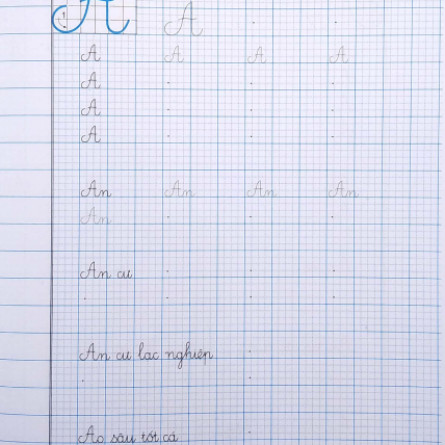 A A
A A A A
A
A
A
An An An An
An
An cư
An cư lạc nghiệp
Ao sâu tốt cá